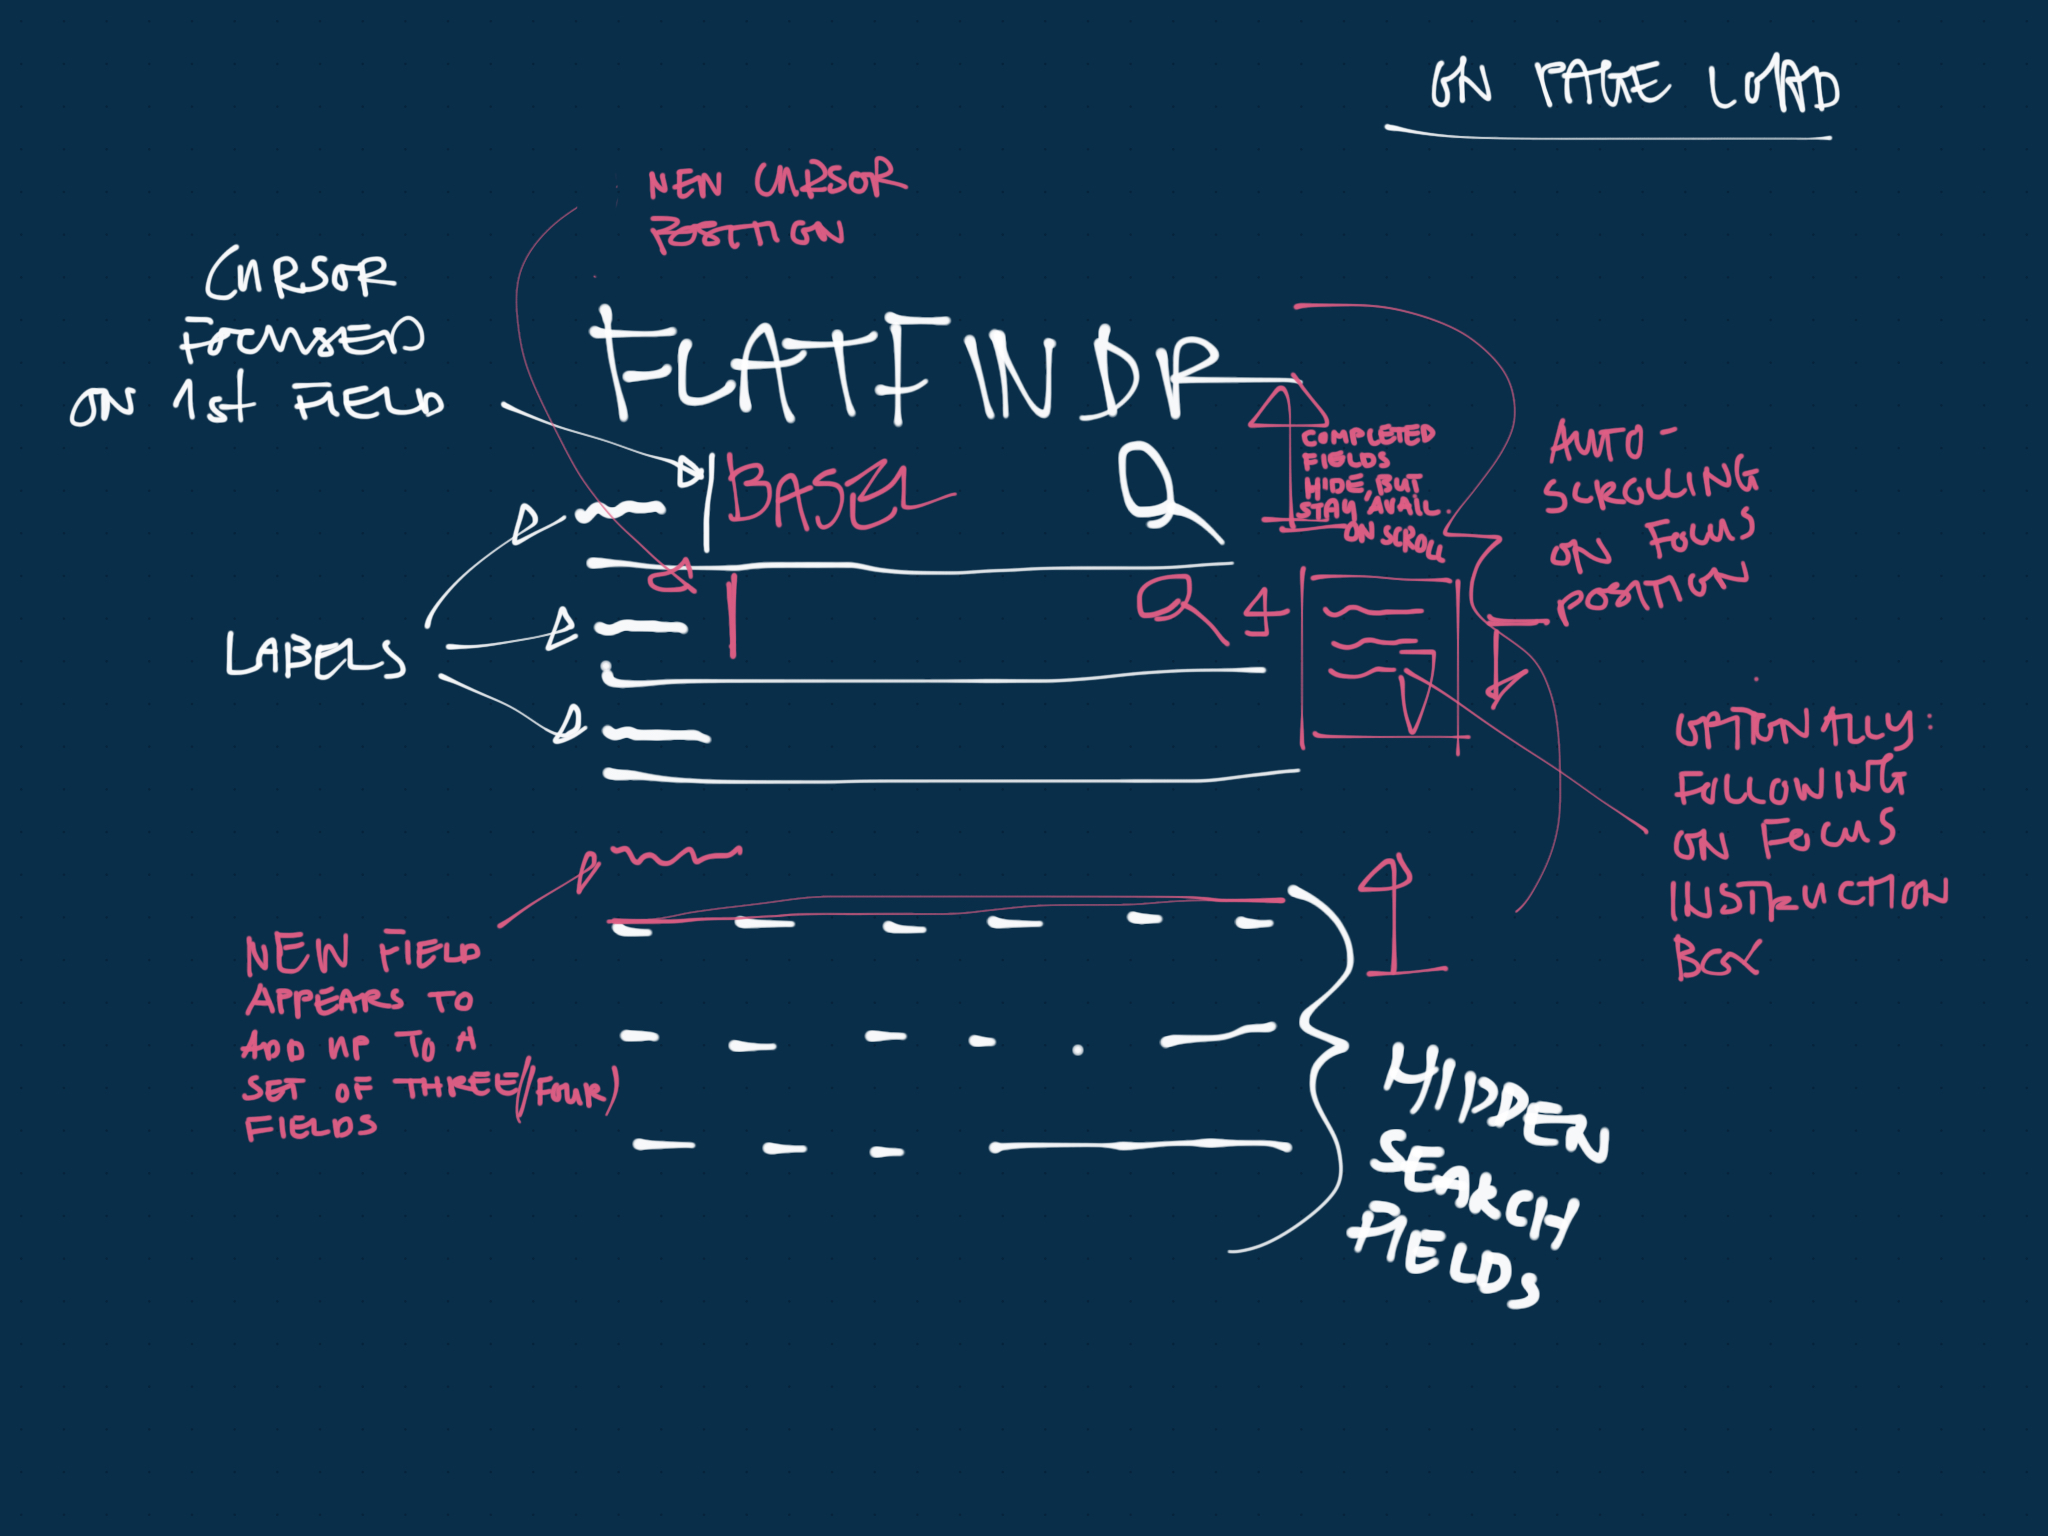 ON PAGE LOAD
NEW CURSOR
POSITION
CURSOR
FOCUSED
ON 1st FIELD
FLATFINDR
BASEL
COMPLETED
FIELDS
HIDE, BUT
STAY AVAIL.
ON SCROLL
AUTO-
SCROLLING
ON FOCUS
POSITION
LABELS
OPTIONALLY:
FOLLOWING
ON FOCUS
INSTRUCTION
BOX
NEW FIELD
APPEARS TO
ADD UP TO A
SET OF THREE/(FOUR)
FIELDS
HIDDEN
SEARCH
FIELDS